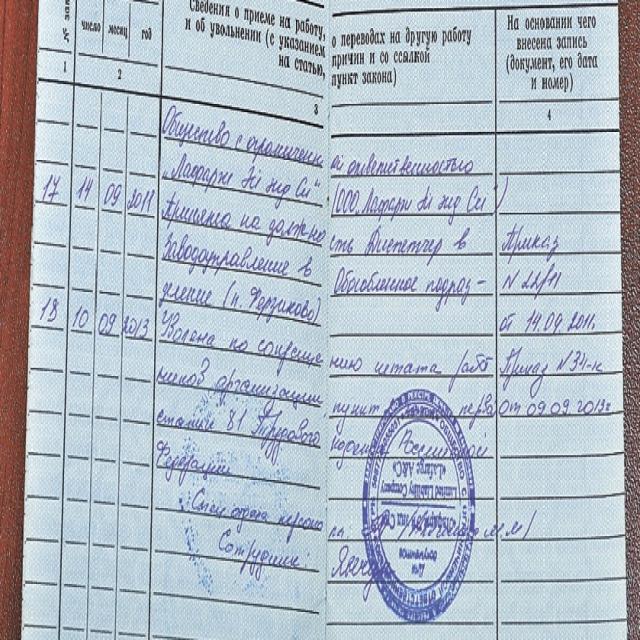 Сведения о приеме на работу, о переводах на другую работу
и об увольнении (с указанием причин и со ссылкой
на статью, пункт закона)
число месяц год
На основании чего
внесена запись
(документ, его дата
и номер)
1 2 3 4
Общество с ограниченной ответственностью
„Лафарж Эй энд Си“ (ООО „Лафарж Эй энд Си“)
17 14 09 2011 Принята на должность Диспетчер в Приказ
Заводоуправление в Обособленное подраз- N 22/11
деление (п. Ферзиково) от 14.09.2011.
18 10 09 2013 Уволена по сокращению штата работ Приказ N34-к
ников организации пункт перв от 09.09.2013г
статьи 81 Трудового кодекса Российской
Федерации
Спец отдела персонала
Сотрудник:
Limited Liability Company
«Lafarge A&C»
Для
документов